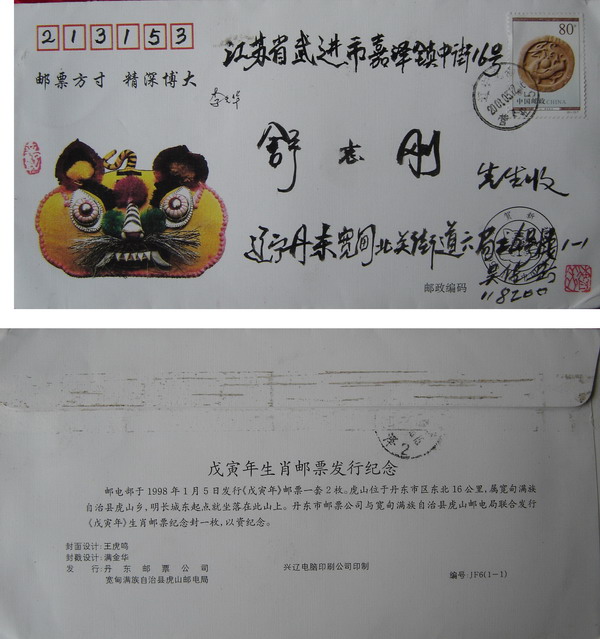 213153
江苏省武进市嘉泽镇中街16号
80分
中国邮政CHINA
邮票方寸 精深博大
舒志刚
先生收
辽宁丹东宽甸北关街道六
邮政编码
118200
戊寅年生肖邮票发行纪念
邮电部于1998年1月5日发行《戊寅年》邮票一套2枚。虎山位于丹东市区东北16公里，属宽甸满族
自治县虎山乡，明长城东起点就坐落在此山上。丹东市邮票公司与宽甸满族自治县虎山邮电局联合发行
《戊寅年》生肖邮票纪念封一枚，以资纪念。
封面设计：王虎鸣
封戳设计：满金华
发 行：丹东邮票公司
宽甸满族自治县虎山邮电局
兴辽电脑印刷公司印制
编号：JF6(1-1)